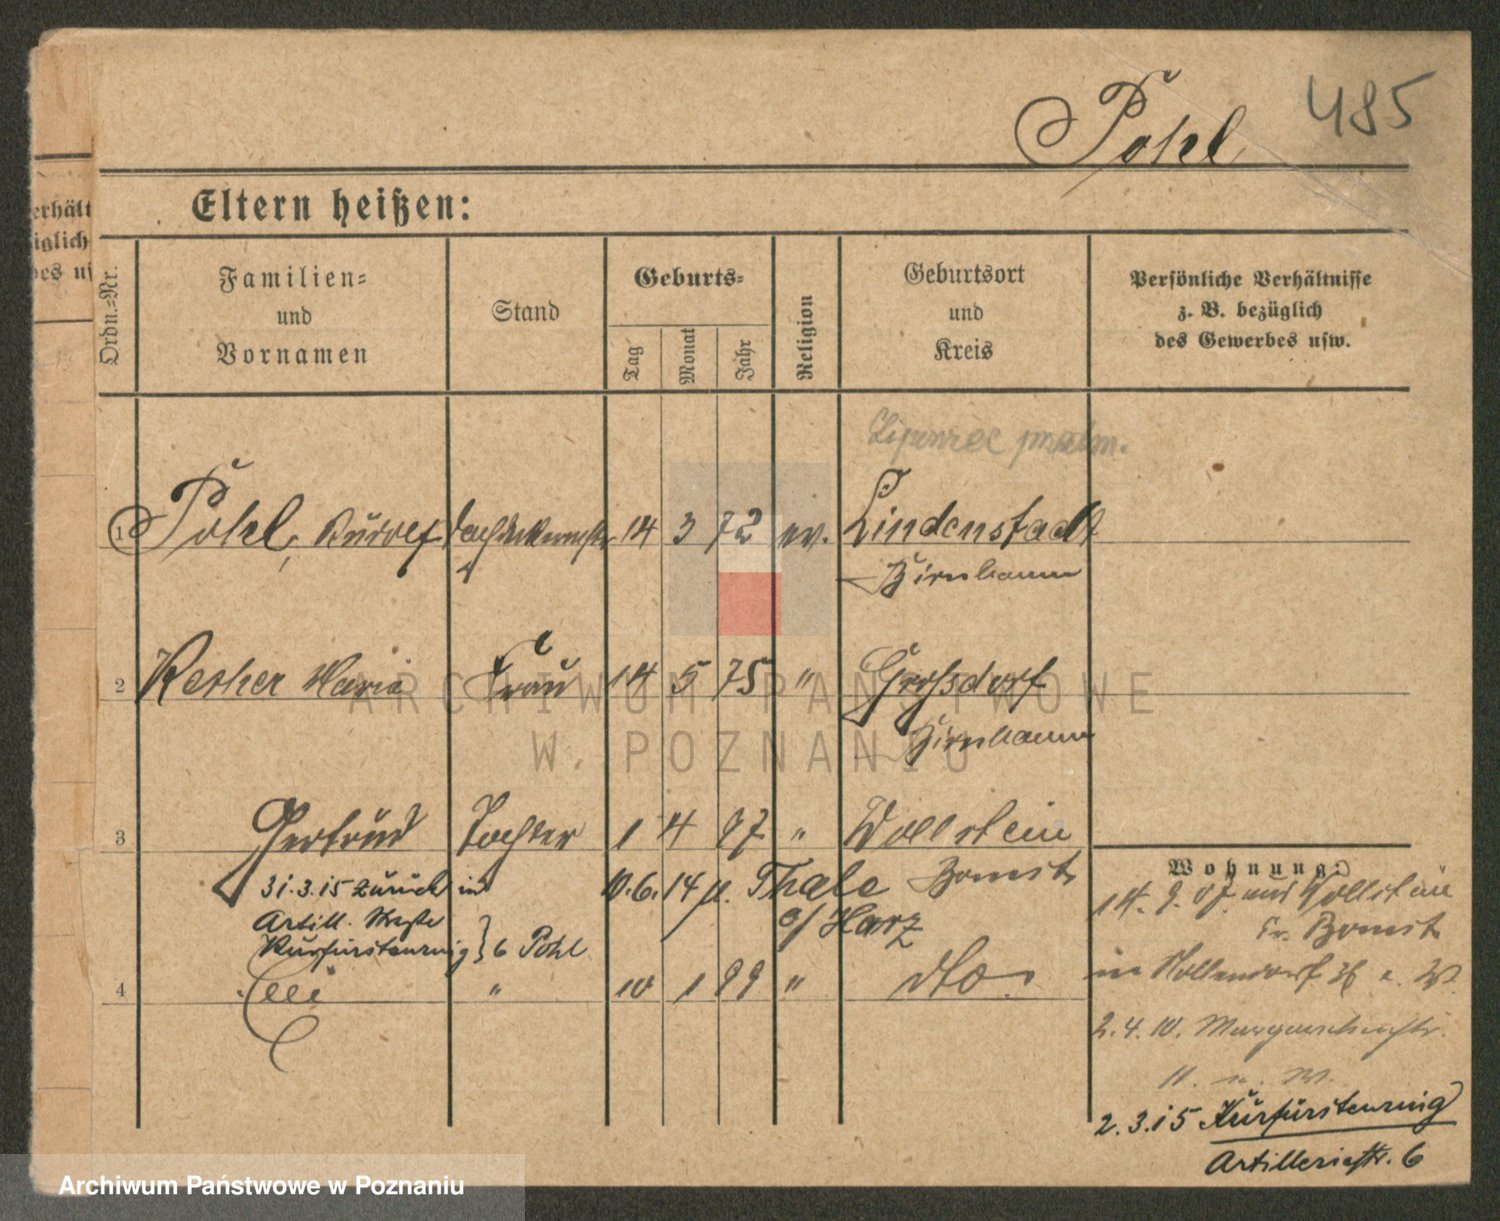 Pohl 485
Eltern heißen:
Ordn.=Nr.
Familien=
und
Vornamen
Stand
Geburts=
Tag
Monat
Jahr
Religion
Geburtsort
und
Kreis
Persönliche Verhältnisse
z. B. bezüglich
des Gewerbes usw.
erhält
iglich
des us
1 Pohl, Rudolf Dachdeckermstr. 14 3 72 ev. Lindenstadt
Birnbaum
2 Maria Frau 14 5 75 " Großdorf
Birnbaum
3 Gertrud Tochter 1 4 97 " Wollstein
Bomst
31.3.15 zurück in 10.6.14 n. Thale
a/Harz
Artill.
Kurfürstenring } 6 Pohl
4 Elli " 10 1 99 " dto.
Wohnung:
14.9.07 aus Wollstein
Kr. Bomst
in
2.4.10.
2.3.15 Kurfürstenring
Artilleriestr. 6
ARCHIWUM PAŃSTWOWE
W POZNANIU
Archiwum Państwowe w Poznaniu